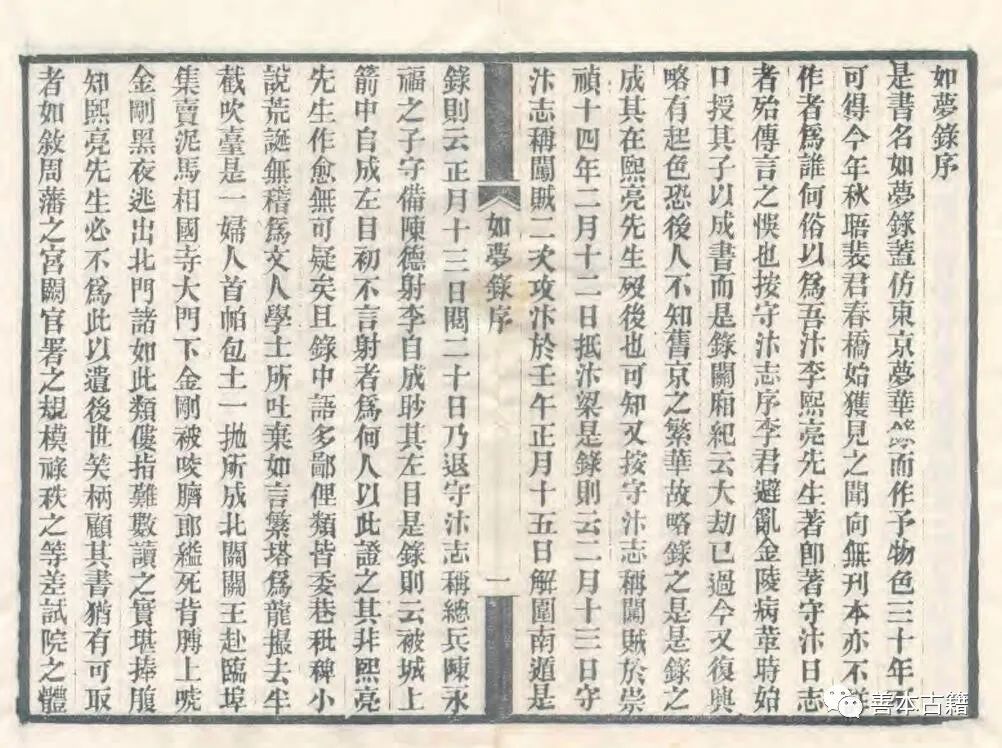 如夢錄序
是書名如夢錄蓋仿東京夢華錄而作予物色三十年
可得今年秋晤裴君春橋始獲見之聞向無刊本亦不
作者爲誰何俗以爲吾汴李熙亮先生著卽著守汴日志
者殆傳言之悞也按守汴志序李君避亂金陵病革時始
口授其子以成書而是錄關廂紀云大劫已過今又復興
略有起色恐後人不知舊京之繁華故略錄之是是錄之
成其在熙亮先生歿後也可知又按守汴志稱闖賊於崇
禎十四年二月十二日抵汴梁是錄則云二月十三日守
汴志稱闖賊二次攻汴於壬午正月十五日解圍南遁是
如夢錄序
一
錄則云正月十三日闖二十日乃退守汴志稱總兵陳永
福之子守備陳德射李自成眇其左目是錄則云被城上
箭中自成左目初不言射者爲何人以此證之其非熙亮
先生作愈無可疑矣且錄中語多鄙俚類皆委巷秕稗小
說荒誕無稽爲文人學士所吐棄如言繁塔爲龍撮去半
截吹臺是一婦人首帕包土一抛所成北關關王赴臨埠
集賣泥馬相國寺大門下金剛被咬臍郎縊死背膊上唬
金剛黑夜逃出北門諸如此類僂指難數讀之實堪捧腹
知熙亮先生必不爲此以遺後世笑柄顧其書猶有可取
者如敘周藩之宮闕官署之規模祿秩之等差試院之體
善本古籍